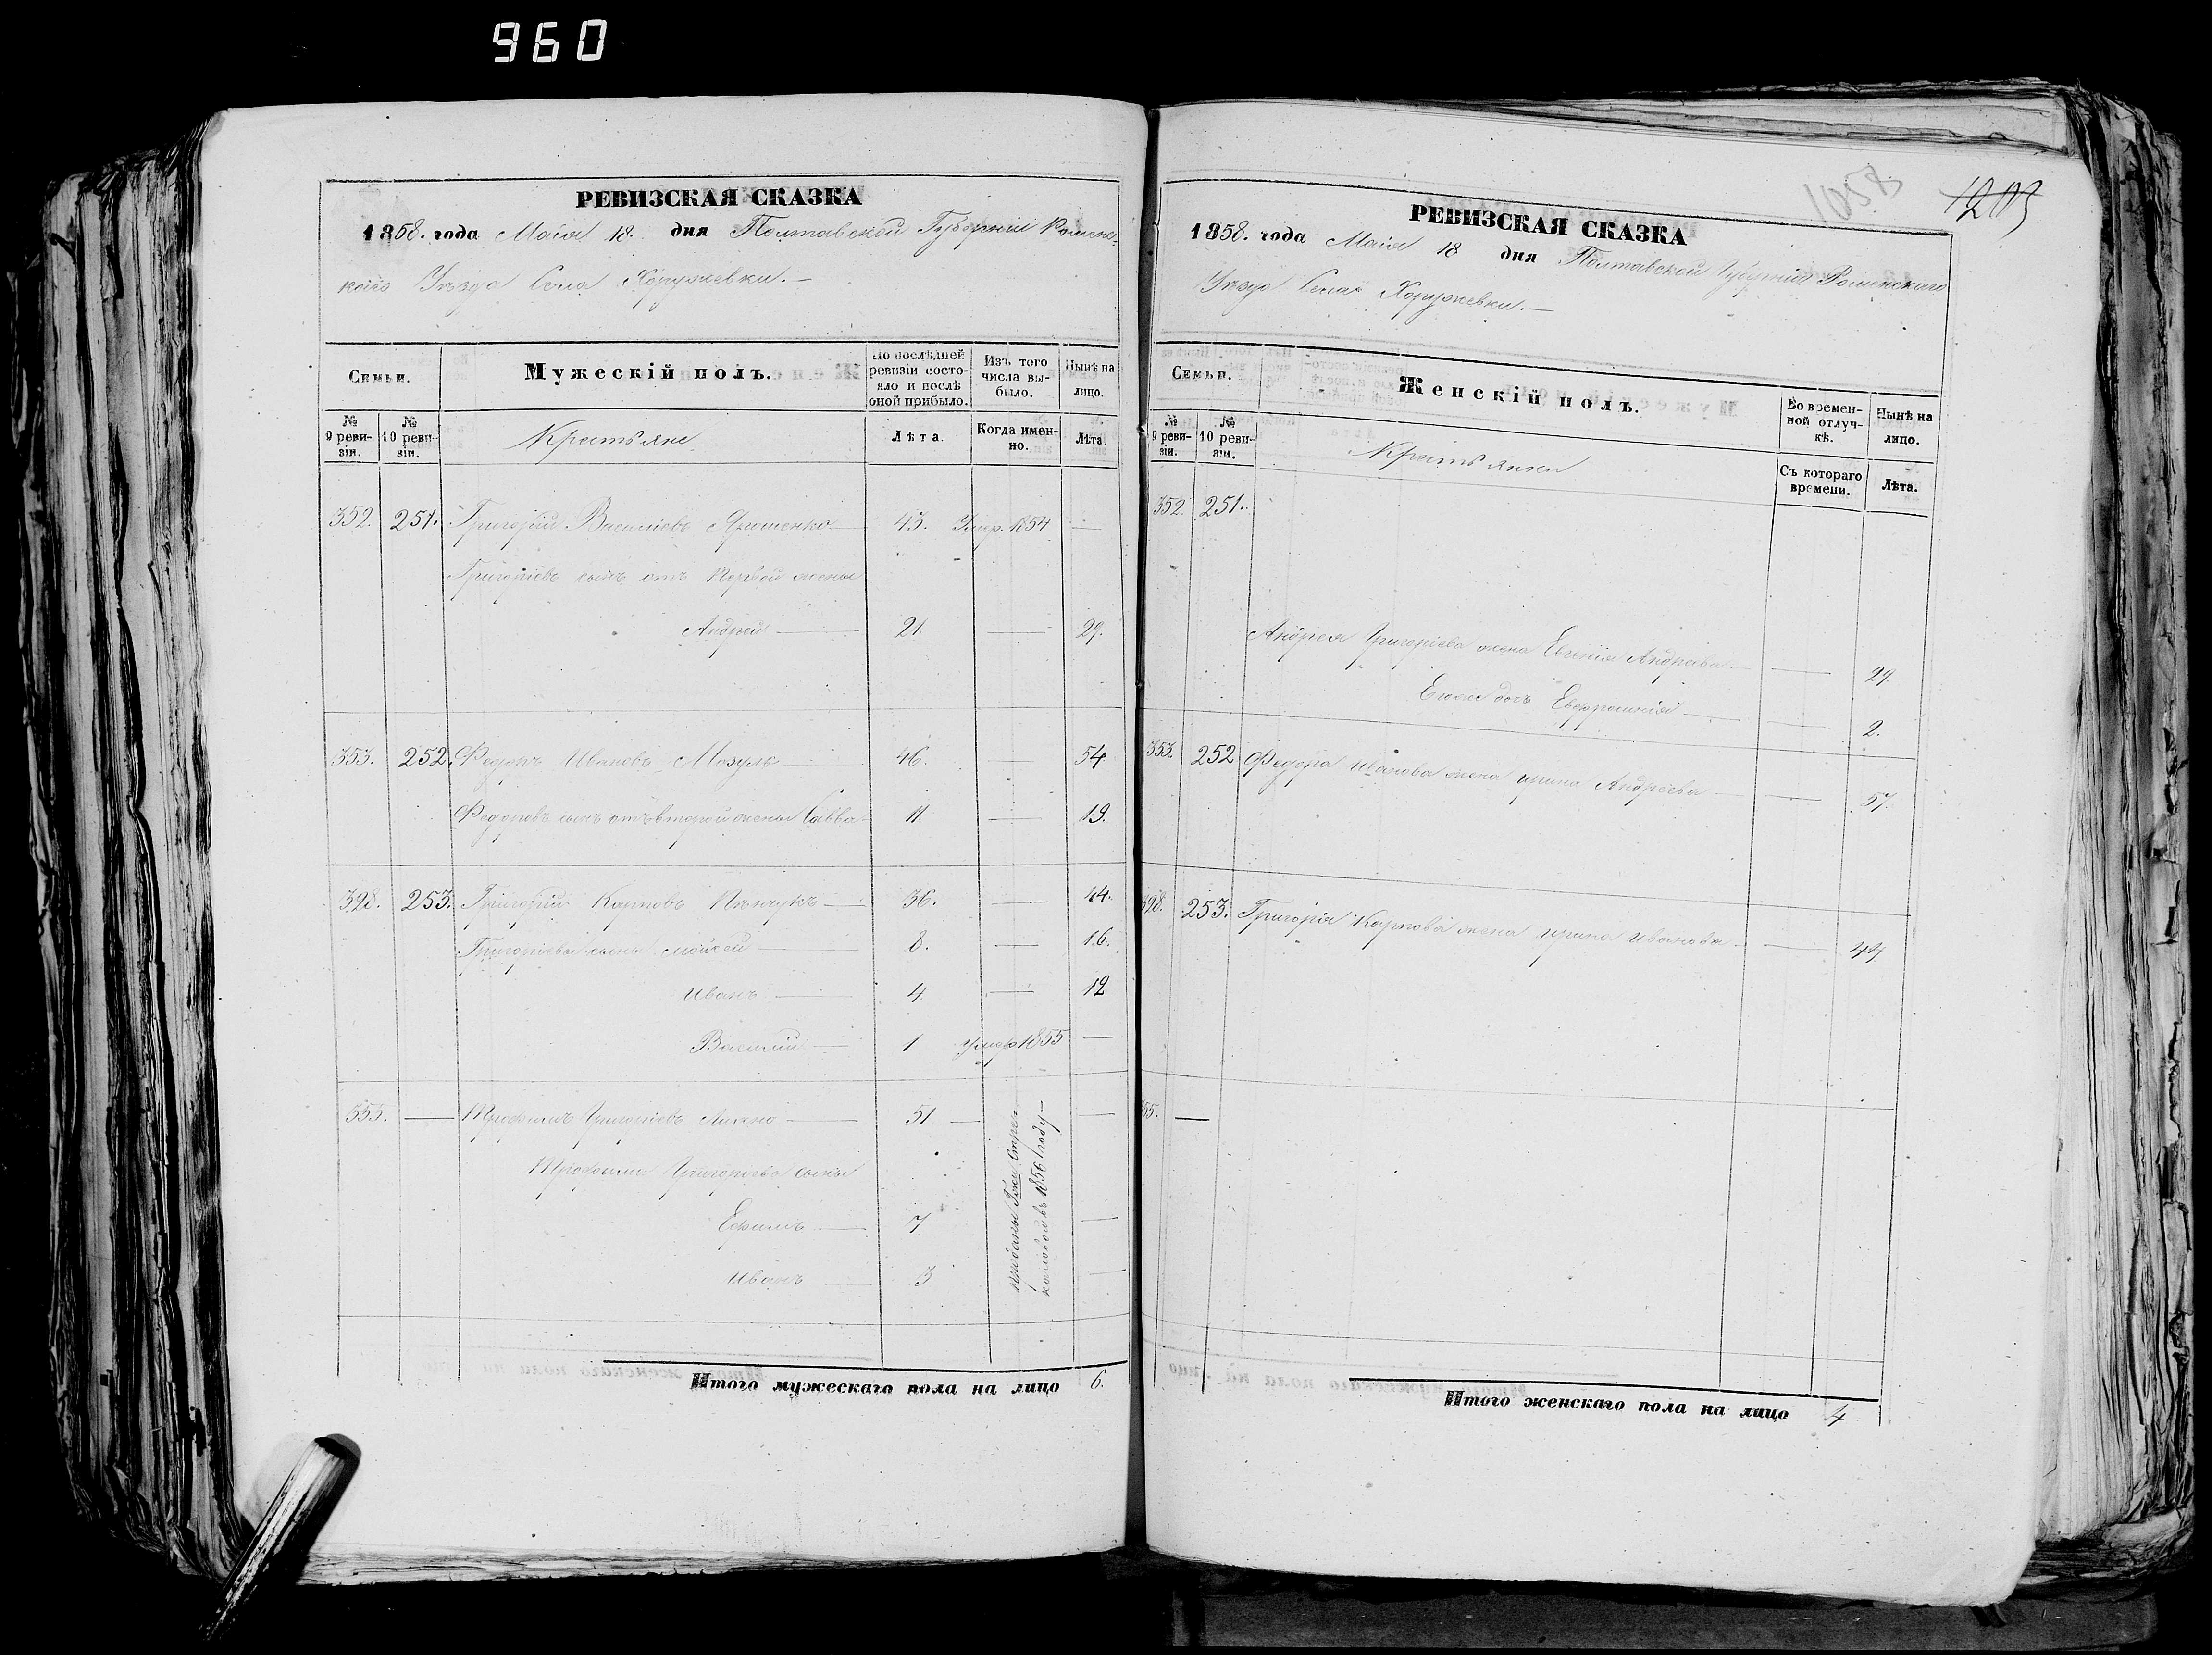 960
РЕВИЗСКАЯ СКАЗКА
1858. года Маія 18. дня Полтавской Губерніи Ромен-
скаго Уѣзда Села Хоружевки.—
Семьи.
Мужескій полъ.
По послѣдней ревизіи состояло и послѣ оной прибыло.
Изъ того числа выбыло.
Нынѣ на лицо.
№ 9 ревизіи.
№ 10 ревизіи.
Крестьяне
Лѣта.
Когда именно.
Лѣта.
352. 251. Григорій Василіевъ 43. Умер. 1854 —
Григоріевъ сынъ отъ первой жены
Андрей — 21. — 29.
353. 252. Федоръ Ивановъ Мозуль — 46. — 54
Федоровъ сынъ отъ второй жены Савва — 11. — 19.
398. 253. Григорій Карповъ — 36. — 44.
Григоріевы сыны Моисей — 8. — 16.
Иванъ — 4 — 12
Василій — 1 умер 1855 —
555. — Трофимъ Григоріевъ — 51 — —
Трофима Григорьева сыны
Ефимъ — 7 —
Иванъ — 3 —
въ 1856 году —
Итого мужескаго пола на лицо 6.
1058
1203
РЕВИЗСКАЯ СКАЗКА
1858. года Маія 18 дня Полтавской Губерніи Роменскаго
Уѣзда Села Хоружевки.—
Семьи.
Женскій полъ.
Во временной отлучкѣ.
Нынѣ на лицо.
№ 9 ревизіи.
№ 10 ревизіи.
Крестьянки
Съ котораго времени.
Лѣта.
352. 251.
Андрея Григоріева жена Евгенія Андреева — — 29.
дочь Евфросинія — — 2.
353. 252 Федора Иванова жена Ирина Андреева — — 57.
398. 253. Григорія Карпова жена Ирина Иванова — — 44
55. —
Итого женскаго пола на лицо 4